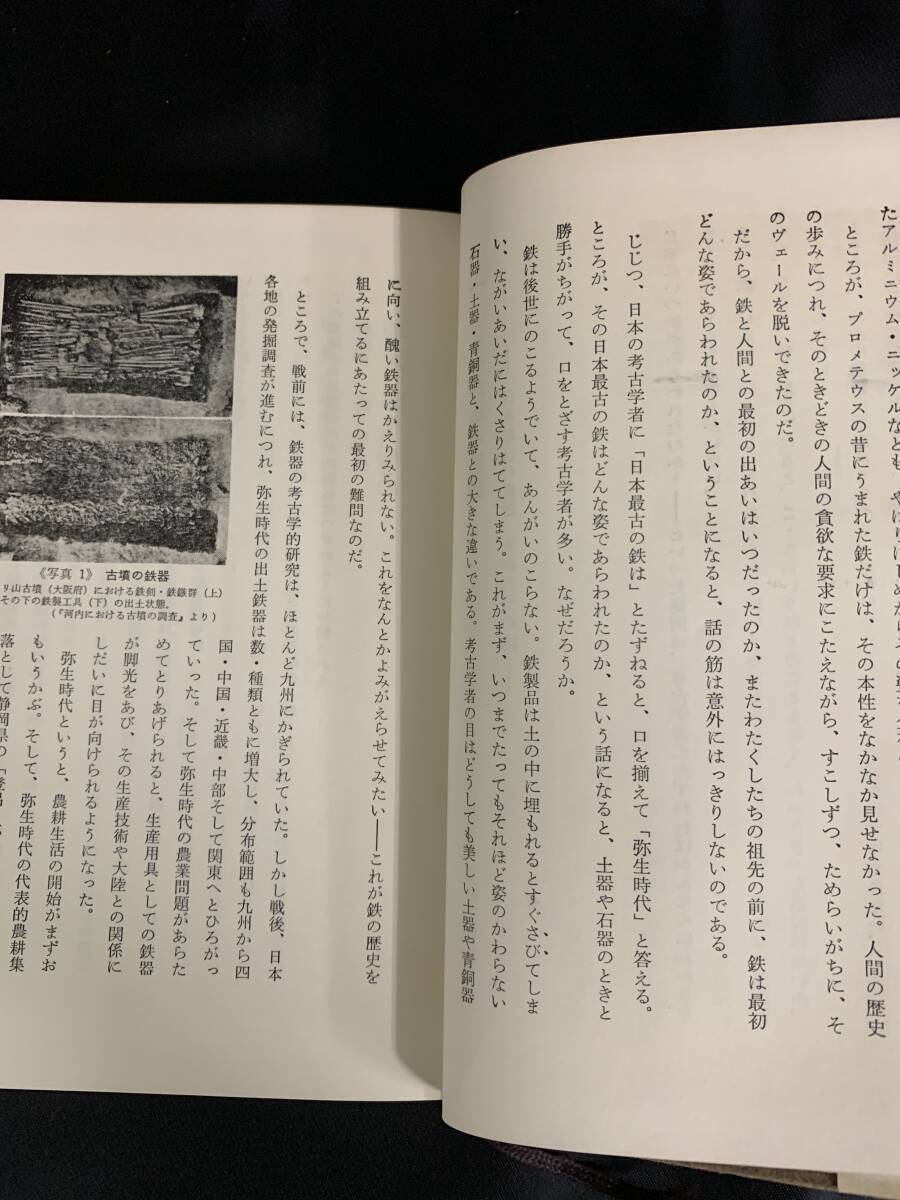 たアルミニウム・ニッケルなども、
ところが、プロメテウスの昔にうまれた鉄だけは、その本性をなかなか見せなかった。人間の歴史
の歩みにつれ、そのときどきの人間の貪欲な要求にこたえながら、すこしずつ、ためらいがちに、そ
のヴェールを脱いできたのだ。
だから、鉄と人間との最初の出あいはいつだったのか、またわたくしたちの祖先の前に、鉄は最初
どんな姿であらわれたのか、ということになると、話の筋は意外にはっきりしないのである。
じじつ、日本の考古学者に「日本最古の鉄は」とたずねると、口を揃えて「弥生時代」と答える。
ところが、その日本最古の鉄はどんな姿であらわれたのか、という話になると、土器や石器のときと
勝手がちがって、口をとざす考古学者が多い。なぜだろうか。
鉄は後世にのこるようでいて、あんがいのこらない。鉄製品は土の中に埋もれるとすぐさびてしま
い、ながいあいだにはくさりはててしまう。これがまず、いつまでたってもそれほど姿のかわらない
石器・土器・青銅器と、鉄器との大きな違いである。考古学者の目はどうしても美しい土器や青銅器
に向い、醜い鉄器はかえりみられない。これをなんとかよみがえらせてみたい――これが鉄の歴史を
組み立てるにあたっての最初の難問なのだ。
ところで、戦前には、鉄器の考古学的研究は、ほとんど九州にかぎられていた。しかし戦後、日本
各地の発掘調査が進むにつれ、弥生時代の出土鉄器は数・種類ともに増大し、分布範囲も九州から四
国・中国・近畿・中部そして関東へとひろがっ
ていった。そして弥生時代の農業問題があらた
めてとりあげられると、生産用具としての鉄器
が脚光をあび、その生産技術や大陸との関係に
しだいに目が向けられるようになった。
弥生時代というと、農耕生活の開始がまずお
もいうかぶ。そして、弥生時代の代表的農耕集
落として静岡県の「登呂
《写真 1》 古墳の鉄器
リ山古墳（大阪府）における鉄剣・鉄鏃群（上）
その下の鉄製工具（下）の出土状態。
（『河内における古墳の調査』より）